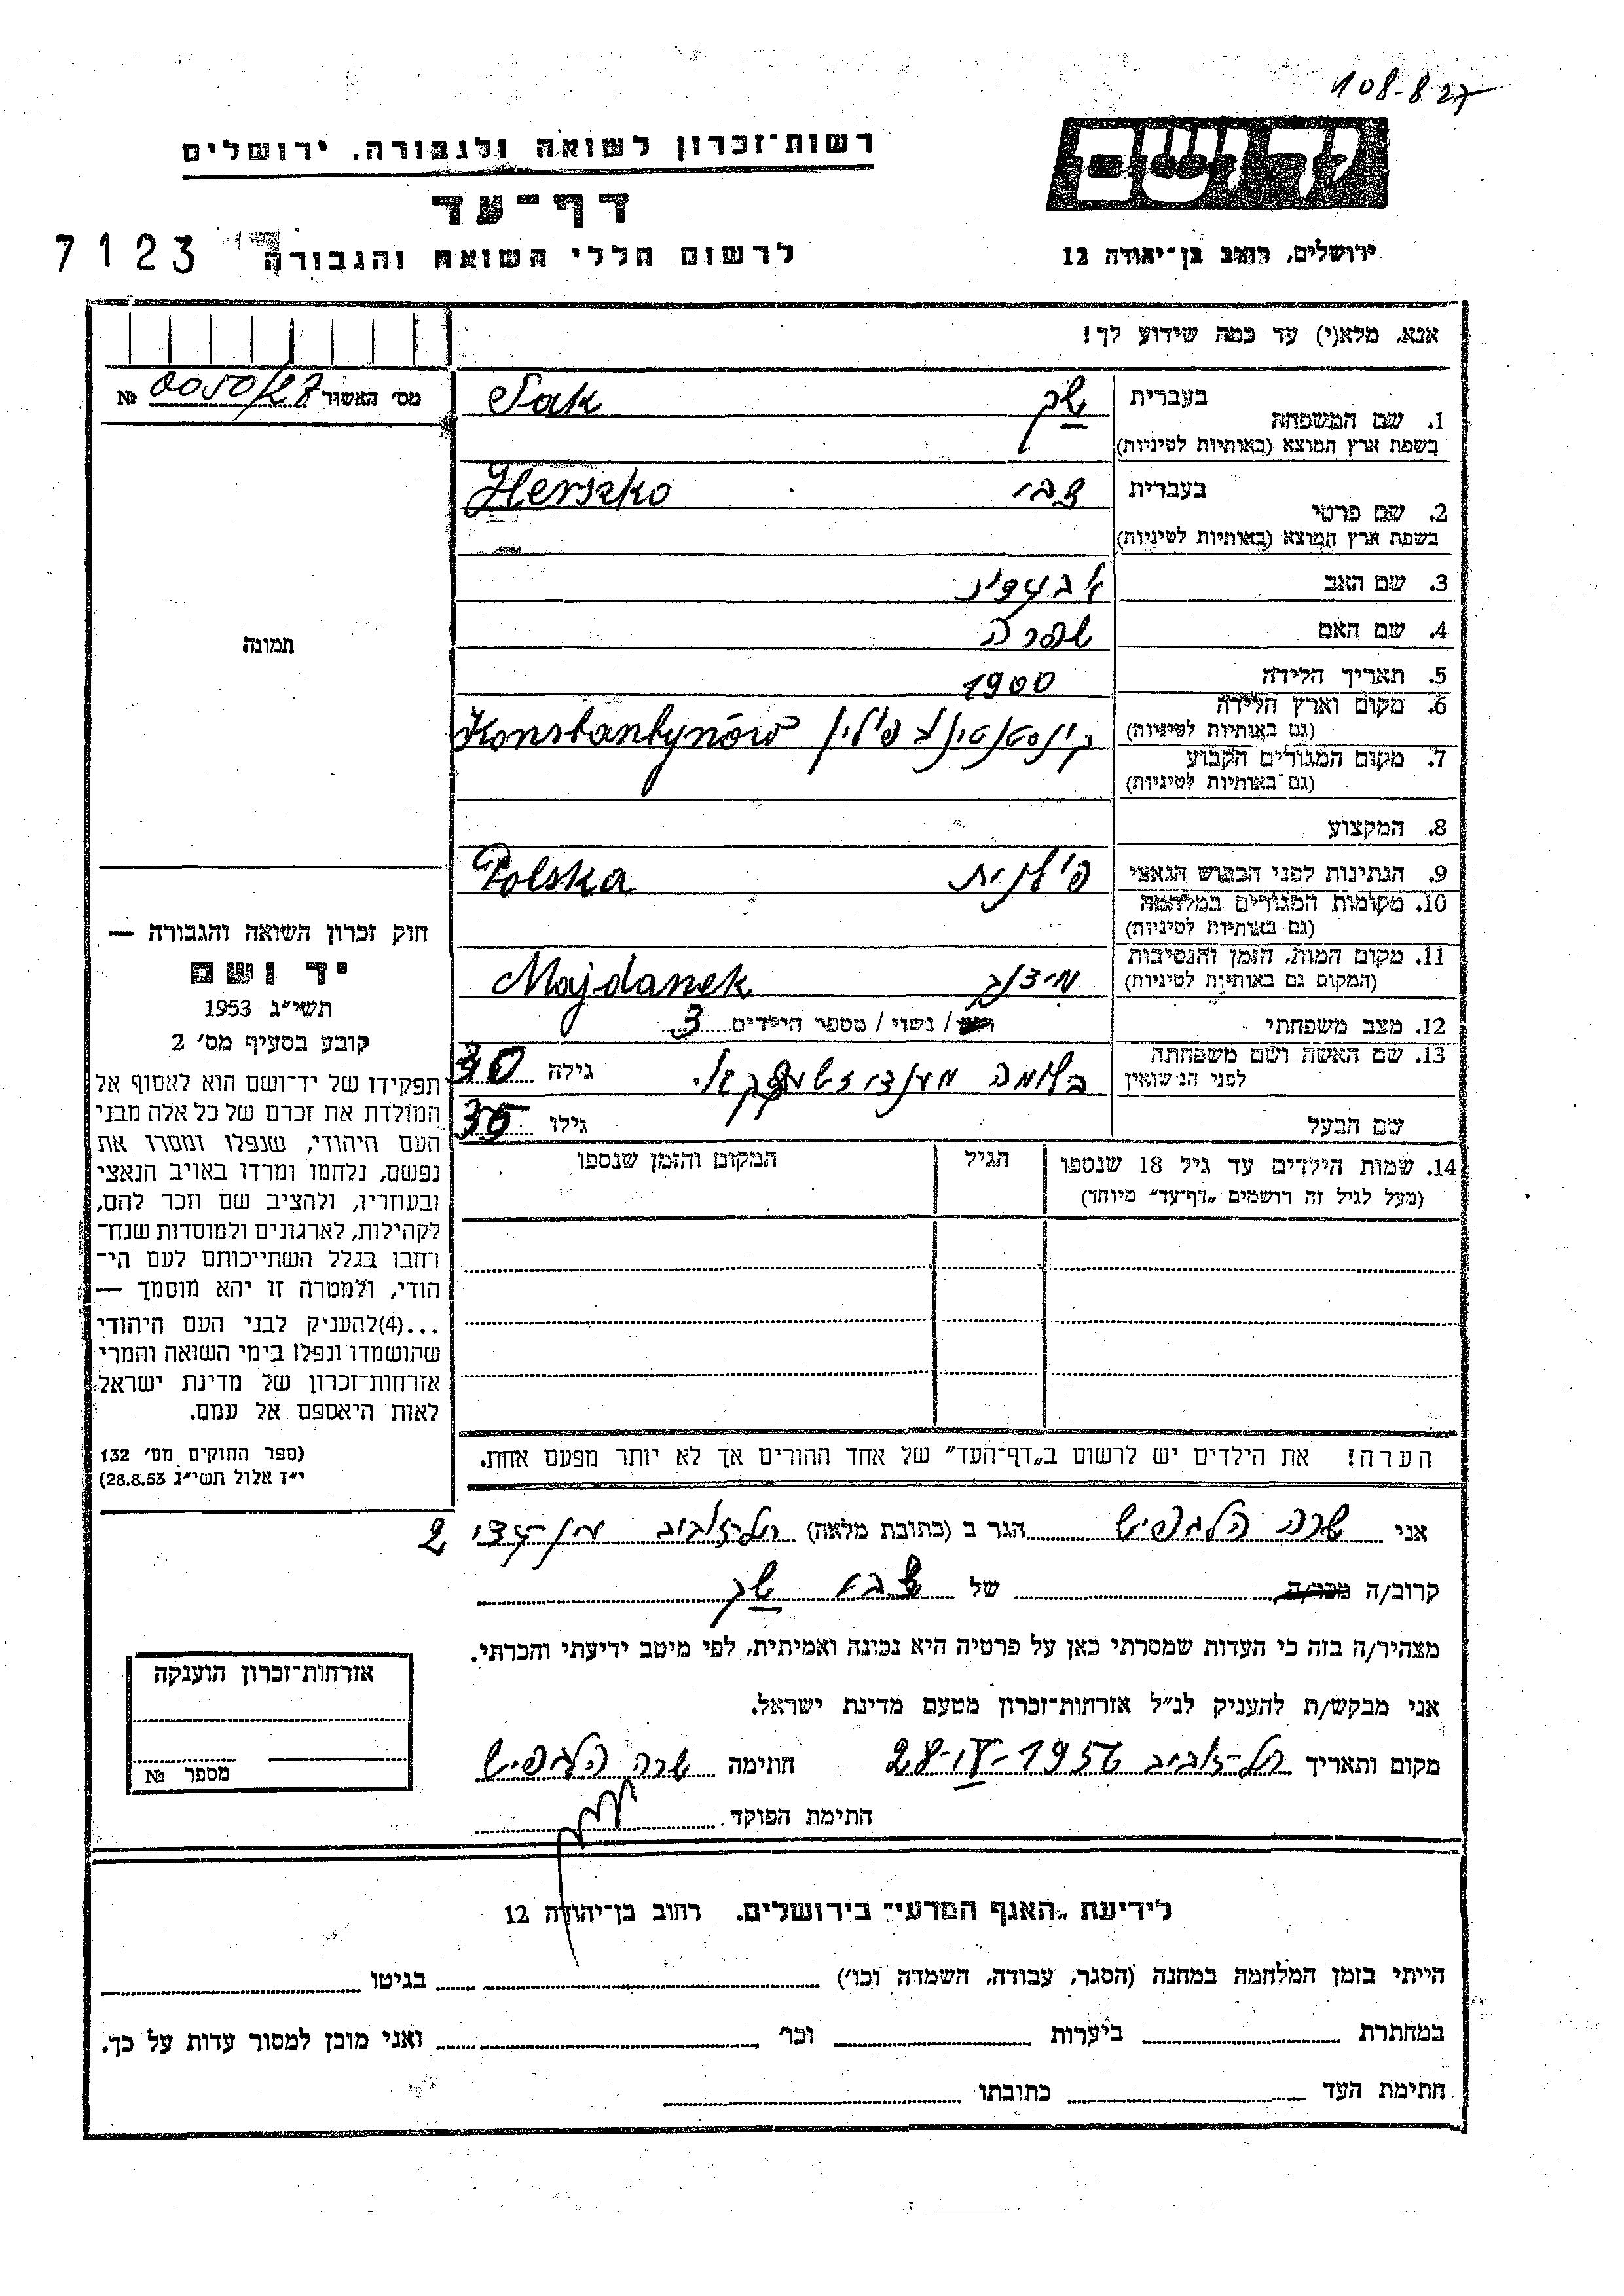 108-827
רשות־זכרון לשואה ולגבורה, ירושלים
ידושם
דף־עד
ירושלים, רחוב בן־יהודה 12
לרשום חללי השואה והגבורה
7123
אנא, מלא(י) עד כמה שידוע לך!
מס׳ האשור 0050/27 №
1. שם המשפחה בעברית שק Sak
בשפת ארץ המוצא (באותיות לטיניות)
2. שם פרטי בעברית צבי Herszko
בשפת ארץ המוצא (באותיות לטיניות)
3. שם האב
4. שם האם שפרה
5. תאריך הלידה 1900
6. מקום וארץ הלידה פולין Konstantynów
(גם באותיות לטיניות)
7. מקום המגורים הקבוע
(גם באותיות לטיניות)
8. המקצוע
9. הנתינות לפני הכבוש הנאצי פולנית Polska
10. מקומות המגורים במלחמה
(גם באותיות לטיניות)
11. מקום המות, הזמן והנסיבות Majdanek
(המקום גם באותיות לטיניות)
12. מצב משפחתי רוק / נשוי / מספר הילדים 3
13. שם האשה ושם משפחתה
לפני הנישואין
גילה 30
שם הבעל גילו 35
14. שמות הילדים עד גיל 18 שנספו הגיל המקום והזמן שנספו
(מעל לגיל זה רושמים „דף־עד״ מיוחד)
הערה! את הילדים יש לרשום ב„דף־העד״ של אחד ההורים אך לא יותר מפעם אחת.
תמונה
חוק זכרון השואה והגבורה —
יד ושם
תשי״ג 1953
קובע בסעיף מס׳ 2
תפקידו של יד־ושם הוא לאסוף אל
המולדת את זכרם של כל אלה מבני
העם היהודי, שנפלו ומסרו את
נפשם, נלחמו ומרדו באויב הנאצי
ובעוזריו, ולהציב שם וזכר להם,
לקהילות, לארגונים ולמוסדות שנח־
רחבו בגלל השתייכותם לעם הי־
הודי, ולמטרה זו יהא מוסמך —
...(4)להעניק לבני העם היהודי
שהושמדו ונפלו בימי השואה והמרי
אזרחות־זכרון של מדינת ישראל
לאות היאספם אל עמם.
(ספר החוקים מס׳ 132
י״ז אלול תשי״ג 28.8.53)
אני שרה הגר ב (כתובת מלאה) תל־אביב 2
קרוב/ה מכר/ה של צבי שק
מצהיר/ה בזה כי העדות שמסרתי כאן על פרטיה היא נכונה ואמיתית, לפי מיטב ידיעתי והכרתי.
אני מבקש/ת להעניק לנ״ל אזרחות־זכרון מטעם מדינת ישראל.
מקום ותאריך תל־אביב 28-IX-1956 חתימה שרה
חתימת הפוקד
אזרחות־זכרון הוענקה
מספר №
לידיעת „האגף המדעי״ בירושלים, רחוב בן־יהודה 12
הייתי בזמן המלחמה במחנה (הסגר, עבודה, השמדה וכו׳) בגיטו
במחתרת ביערות וכו׳ ואני מוכן למסור עדות על כך.
חתימת העד כתובתו